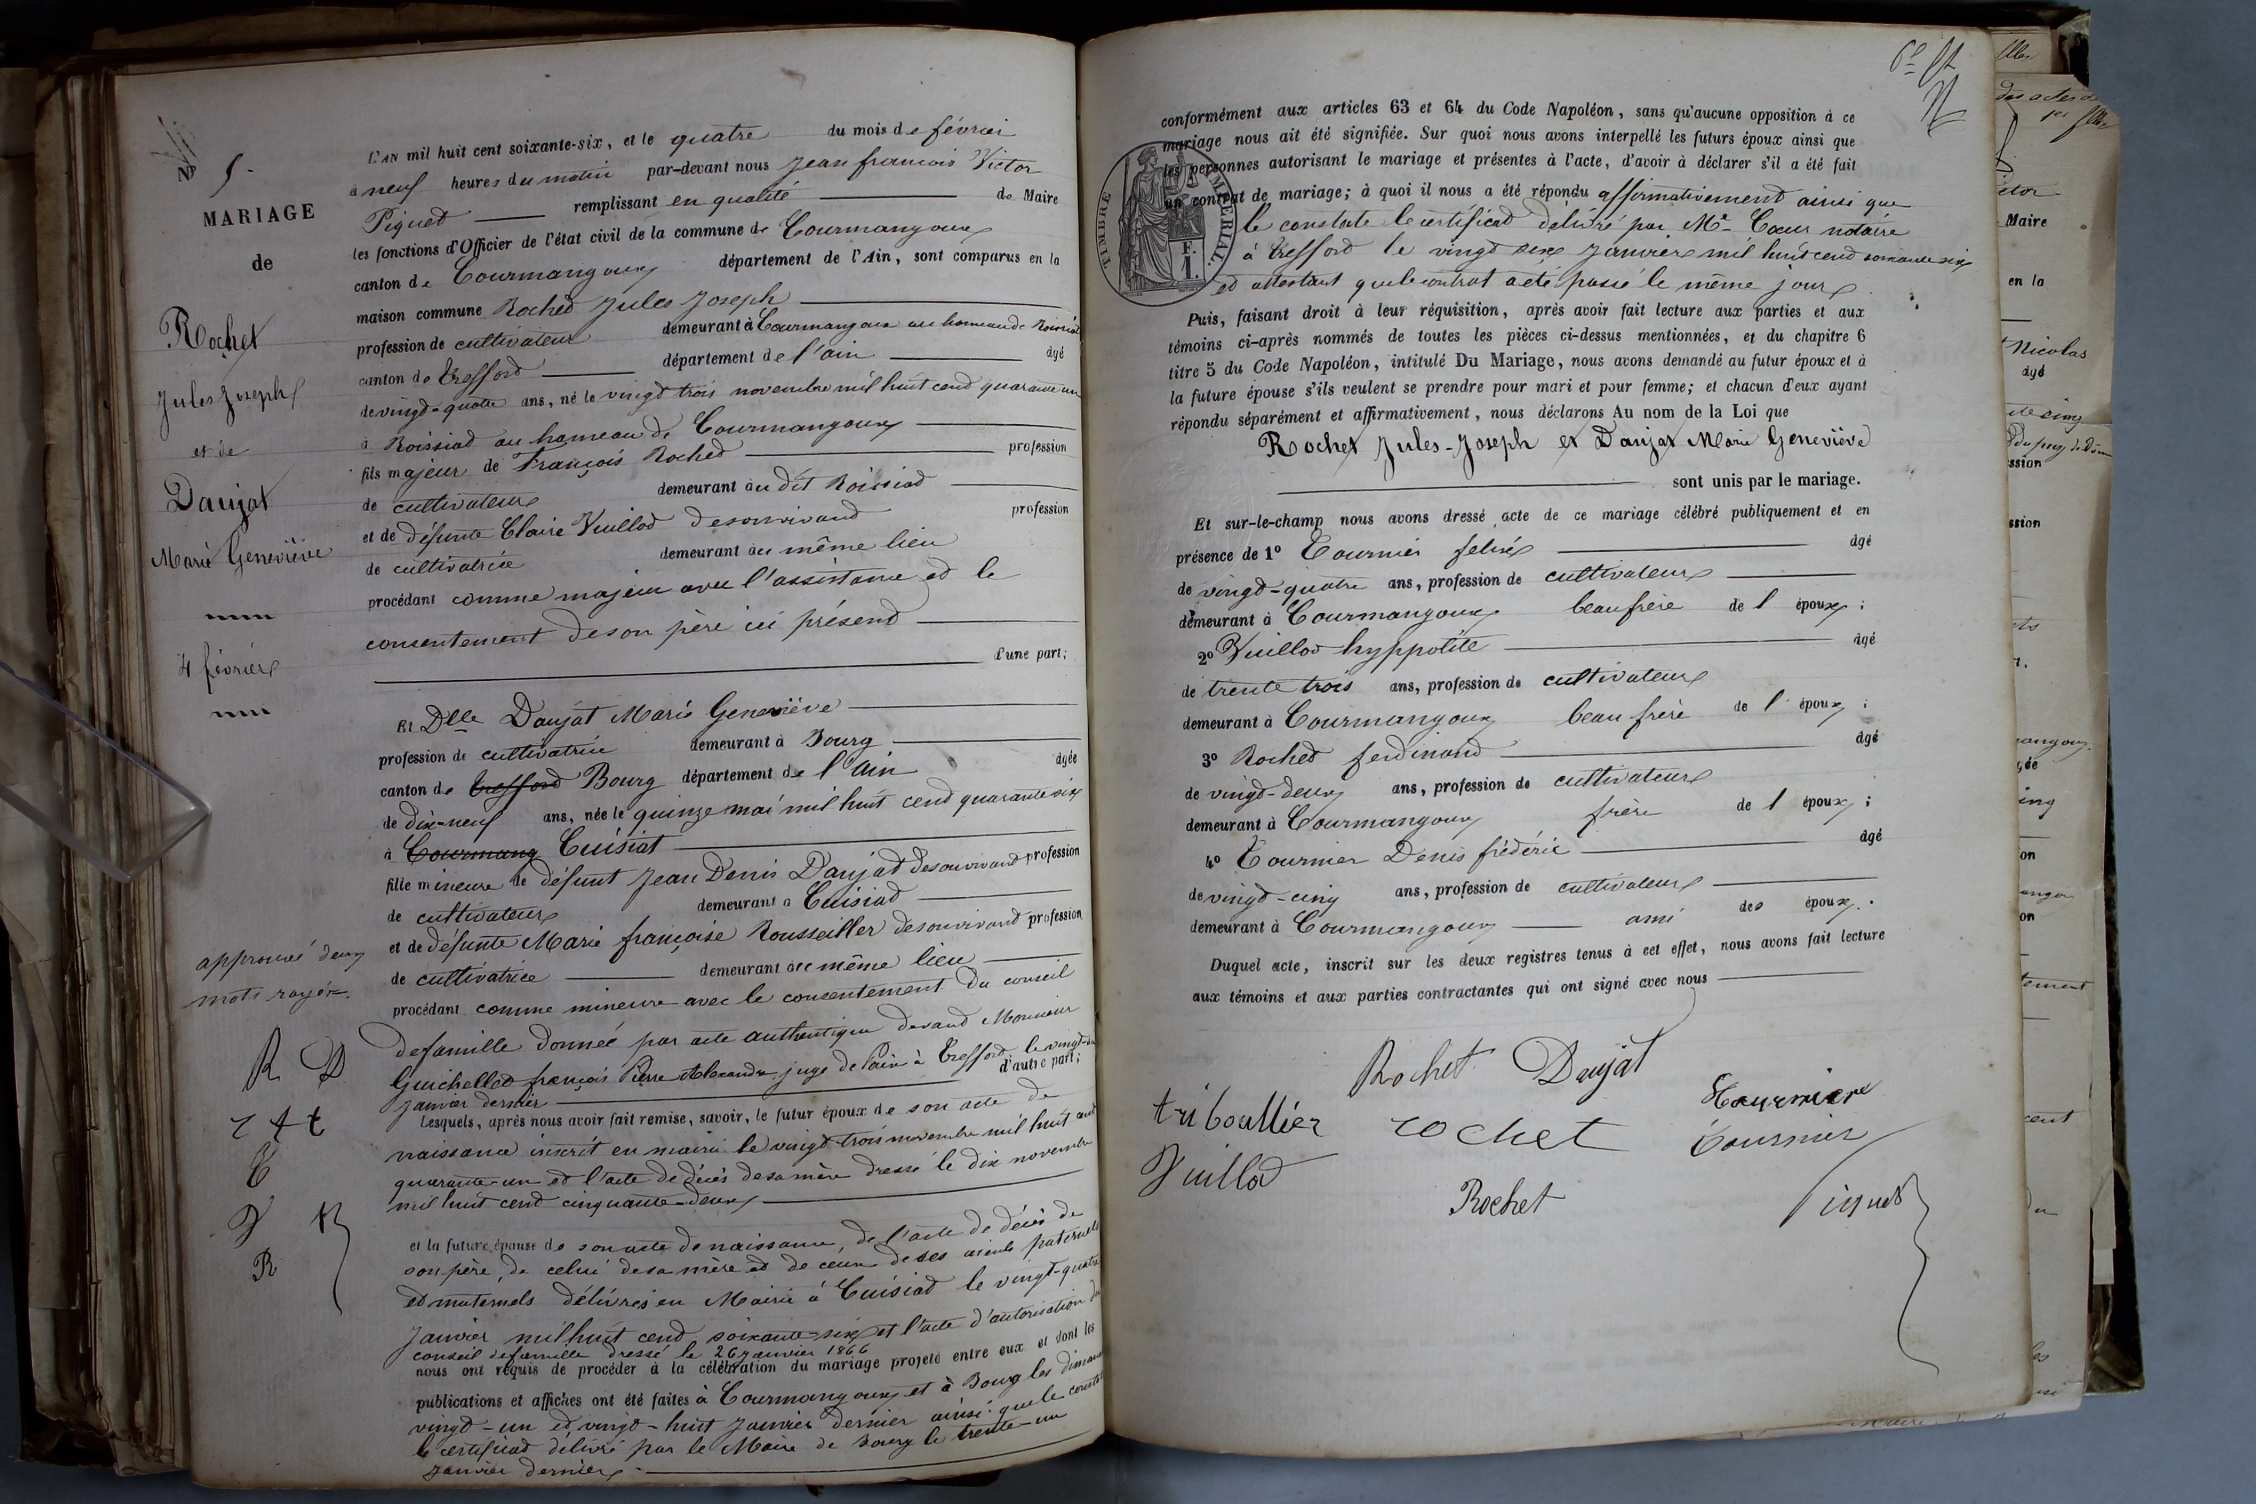 N° 5.
MARIAGE
de
Rochet
Jules Joseph
et de
Daujat
Marie Geneviève
4 février
approuvé deux
mots rayés.
R D
r t t
T
V
R
L'AN mil huit cent soixante-six, et le quatre du mois de février
à neuf heures du matin par-devant nous Jean françois Victor
Piquet remplissant en qualité de Maire
les fonctions d'Officier de l'état civil de la commune de Courmangoux
canton de Courmangoux département de l'Ain, sont comparus en la
maison commune Rochet Jules Joseph
profession de cultivateur demeurant à Courmangoux au hameau de Roissiat
canton de Trefford département de l'ain âgé
de vingt-quatre ans, né le vingt trois novembre mil huit cend quarante un
à Roissiad au hameau de Courmangoux
fils majeur de François Roched profession
de cultivateur demeurant au dit Roissiad
et de défunte Claire Vuillod desonvivand profession
de cultivatrice demeurant au même lieu
procédant comme majeur avec l'assistance ed le
consentement de son père ici présend
d'une part;
Et Dlle Daujat Marie Geneviève
profession de cultivatrice demeurant à Bourg
canton de Trefford Bourg département de l'Ain âgée
de dix-neuf ans, née le quinze mai mil huit cend quarante six
à Courmang Cuisiat
fille mineure de défunt Jean Denis Daujat desonvivand profession
de cultivateur demeurant à Cuisiad
et de défunte Marie françoise Rousseiller desonvivand profession
de cultivatrice demeurant au même lieu
procédant comme mineure avec le consentement du conseil
de famille donnée par acte authentique devand Monsieur
Guichelled françois Pierre Alexandre juge de Paix à Trefford le vingt-six
janvier dernier d'autre part;
Lesquels, après nous avoir fait remise, savoir, le futur époux de son acte de
naissance inscrit en mairie le vingt-trois novembre mil huit cent
quarante-un et l'acte de décès de sa mère dressé le dix novembre
mil huit cend cinquante-deux
et la future épouse de son acte de naissance, de l'acte de décès de
son père, de celui de sa mère ed de ceux de ses aïeuls paternels
ed maternels délivrés en Mairie à Cuisiad le vingt-quatre
Janvier mil huit cend soixante-six et l'acte d'autorisation du
conseil de famille dressé le 26 janvier 1866
nous ont requis de procéder à la célébration du mariage projeté entre eux et dont les
publications et affiches ont été faites à Courmangoux et à Bourg les dimanches
vingt-un ed vingt-huit Janvier dernier ainsi que le constate
le certificad délivré par le Maire de Bourg le trente-un
Janvier dernier.
conformément aux articles 63 et 64 du Code Napoléon, sans qu'aucune opposition à ce
mariage nous ait été signifiée. Sur quoi nous avons interpellé les futurs époux ainsi que
les personnes autorisant le mariage et présentes à l'acte, d'avoir à déclarer s'il a été fait
un contrat de mariage; à quoi il nous a été répondu affirmativement ainsi que
le constate le certificad délivré par Me Cœur notaire
à Trefford le vingt six Janvier mil huit cend soixante six
ed attestant que le contrat a été passé le même jour
TIMBRE IMPERIAL.
F.
1.
Puis, faisant droit à leur réquisition, après avoir fait lecture aux parties et aux
témoins ci-après nommés de toutes les pièces ci-dessus mentionnées, et du chapitre 6
titre 5 du Code Napoléon, intitulé Du Mariage, nous avons demandé au futur époux et à
la future épouse s'ils veulent se prendre pour mari et pour femme; et chacun d'eux ayant
répondu séparément et affirmativement, nous déclarons Au nom de la Loi que
Rochet Jules-Joseph et Daujat Marie Geneviève
sont unis par le mariage.
Et sur-le-champ nous avons dressé acte de ce mariage célébré publiquement et en
présence de 1° Tournier felix âgé
de vingt-quatre ans, profession de cultivateur
demeurant à Courmangoux beaufrère de l époux;
2° Vuillod hyppolite âgé
de trente trois ans, profession de cultivateur
demeurant à Courmangoux beau frère de l époux;
3° Roched ferdinand âgé
de vingt-deux ans, profession de cultivateur
demeurant à Courmangoux frère de l époux;
4° Tournier Denis frédéric âgé
de vingt-cinq ans, profession de cultivateur
demeurant à Courmangoux ami des époux.
Duquel acte, inscrit sur les deux registres tenus à cet effet, nous avons fait lecture
aux témoins et aux parties contractantes qui ont signé avec nous
Rochet Daujat
triboullier rochet Tournier
Vuillod Tournier
Rochet Piquet
Maire
en la
Nicolas
âgé